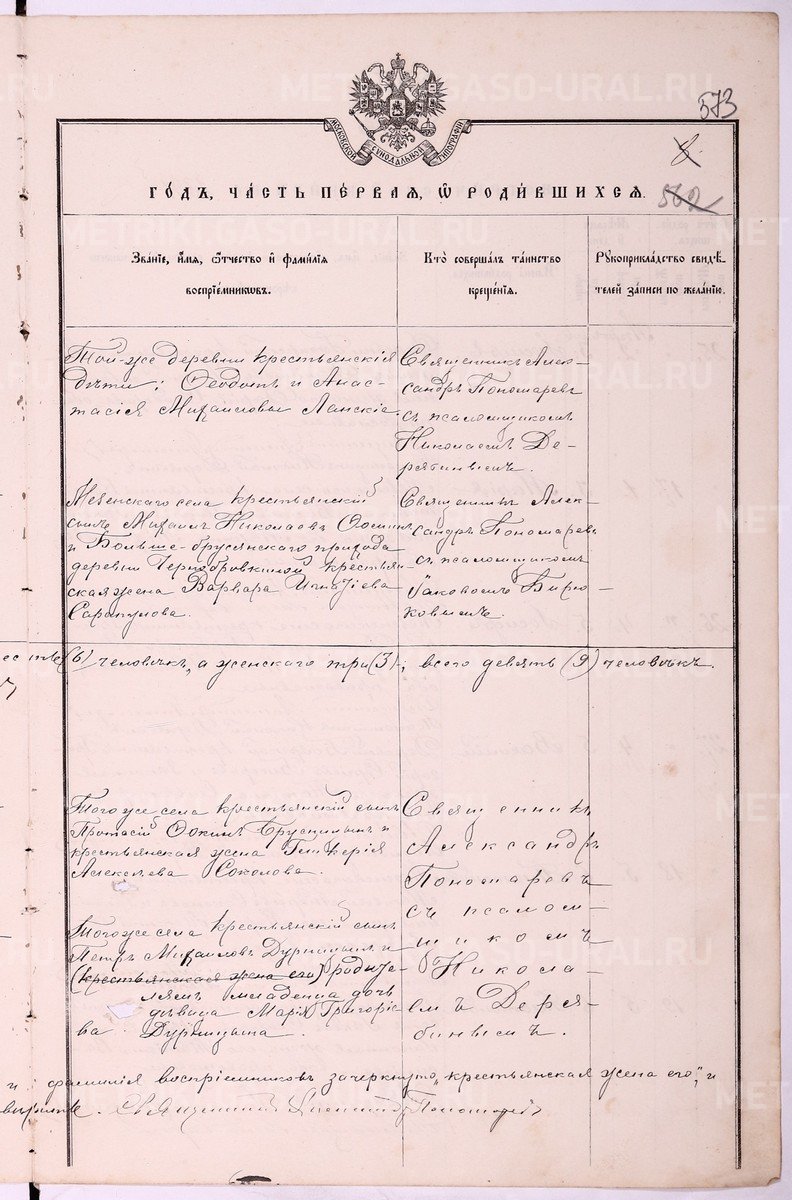 METRIKI.GASO-URAL.RU
573
МОСКОВСКОЙ СѴНОДАЛЬНОЙ ТИПОГРАФІИ
8.
562
ГО́ДЪ, ЧА́СТЬ ПЕ́РВАЯ, Ѡ РОДИ́ВШИХСЯ.
Зва́нїе, и́мя, ѻ҆́тчество и҆ фами́лїя
воспрїе́мникѡвъ.
Кто̀ соверша́лъ та́инство
креще́нїя.
Рꙋкоприкла́дство свидѣ́-
телей за́писи по жела́нїю.
Той-же деревни крестьянскія
дѣти: Ѳеодотъ и Анас-
тасія Михаиловы Ланскіе
Священникъ Алек-
сандръ Пономаревъ
съ псаломщикомъ
Николаемъ Де-
рябинымъ.
села крестьянскій
сынъ Михаилъ Николаевъ
и Больше-брусянскаго прихода
деревни Чернобровкиной крестьян
ская жена Варвара Игнатіева
Сарапулова.
Священникъ Алек-
сандръ Пономаревъ
съ псаломщикомъ
Іаковомъ Бирю-
ковымъ.
(6) человѣкъ, а женскаго три (3); всего девять (9) человѣкъ.
Того же села крестьянскій сынъ
Протасій Ѳокинъ Брусницынъ и
крестьянская жена Гликерія
Алексѣева Соколова.
Священникъ
Александръ
Пономаревъ
съ псалом-
щикомъ
Никола-
емъ Деря-
бинымъ.
Того же села крестьянскій сынъ
Петръ Михаиловъ Дурницынъ и
(крестьянская жена его) родите-
лямъ младенца дочь
дѣвица Марія Григоріе
ва Дурницына.
и фамилія воспріемниковъ зачеркнуто „крестьянская жена его“, и
вѣрить. Священникъ Александръ Пономаревъ